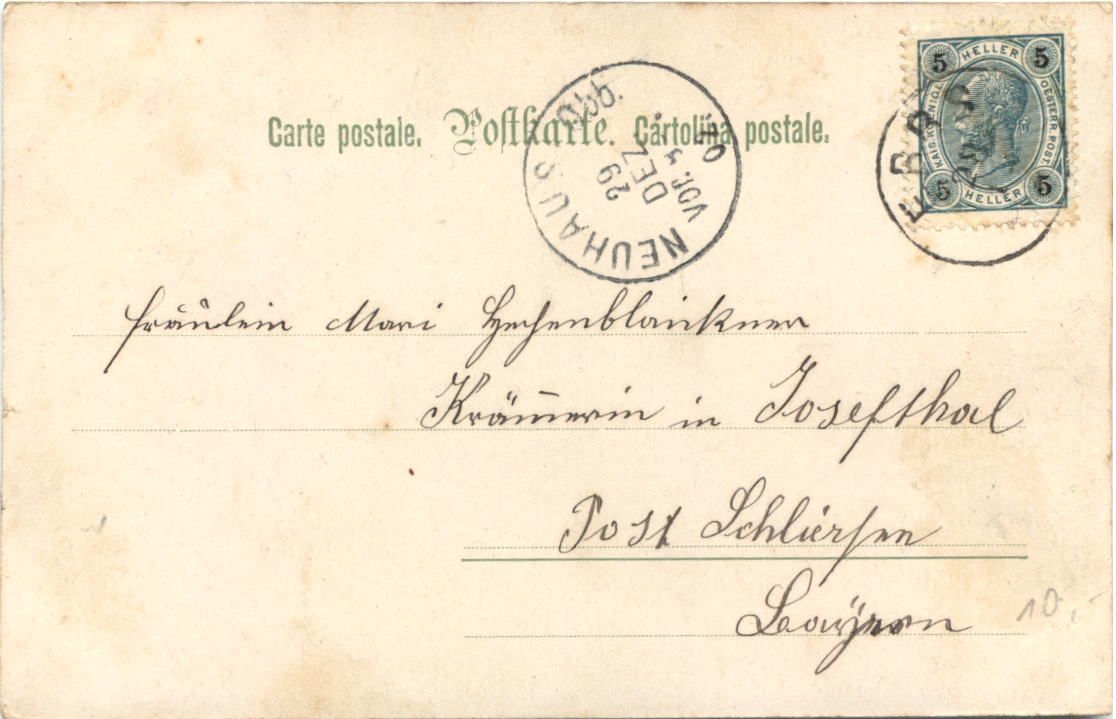 Carte postale. Postkarte. Cartolina postale.
5 HELLER 5
KAIS. KÖNIGL. OESTERR. POST.
5 HELLER 5
EBBS
NEUHAUS
29
DEZ
VOR. 5
01.
Fräulein Mari Hechenblaickner
Krämerin in Josefthal
Post Schliersee
Bayern
10,-